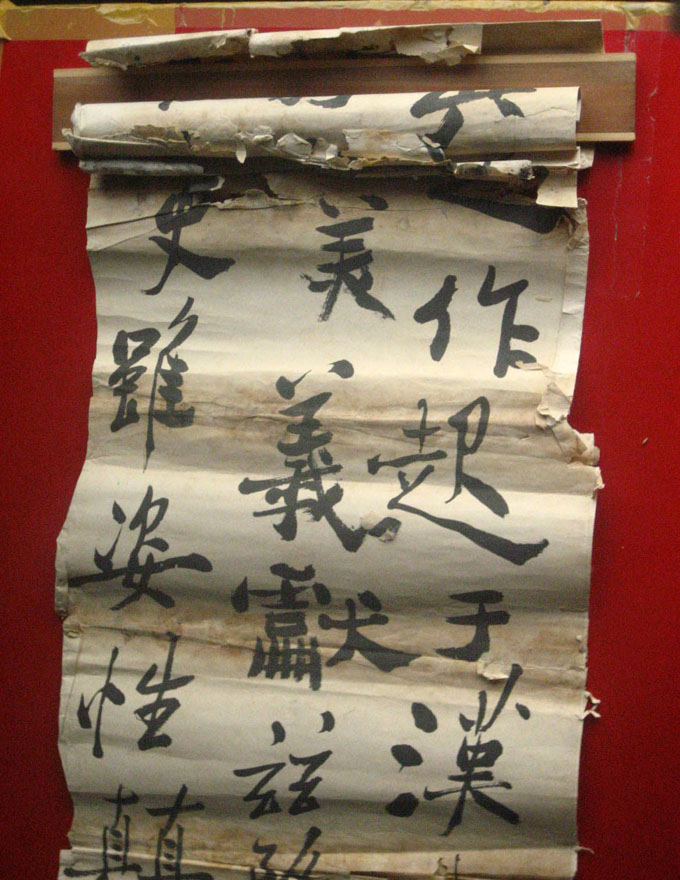 作起于漢
美羲獻茲
史雖姿性